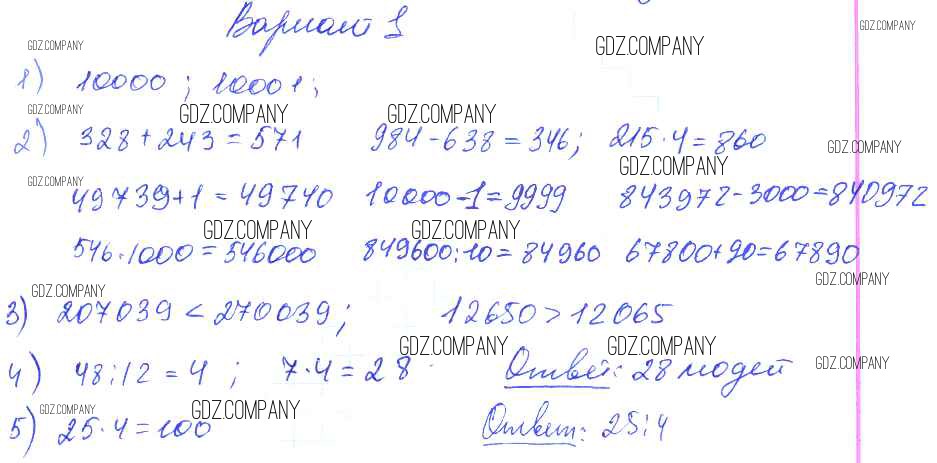 Вариант 1
GDZ.COMPANY GDZ.COMPANY GDZ.COMPANY
1) 10000 ; 10001 ;
GDZ.COMPANY GDZ.COMPANY GDZ.COMPANY
2) 328 + 243 = 571 984 - 638 = 346; 215 · 4 = 860
GDZ.COMPANY GDZ.COMPANY GDZ.COMPANY
49739 + 1 = 49740 10000 - 1 = 9999 843972 - 3000 = 840972
GDZ.COMPANY GDZ.COMPANY
546 · 1000 = 546000 849600 : 10 = 84960 67800 + 90 = 67890
GDZ.COMPANY GDZ.COMPANY
3) 207039 < 270039 ; 12650 > 12065
GDZ.COMPANY GDZ.COMPANY GDZ.COMPANY
4) 48 : 12 = 4 ; 7 · 4 = 28 Ответ: 28 модей
GDZ.COMPANY GDZ.COMPANY
5) 25 · 4 = 100 Ответ: 25 ; 4